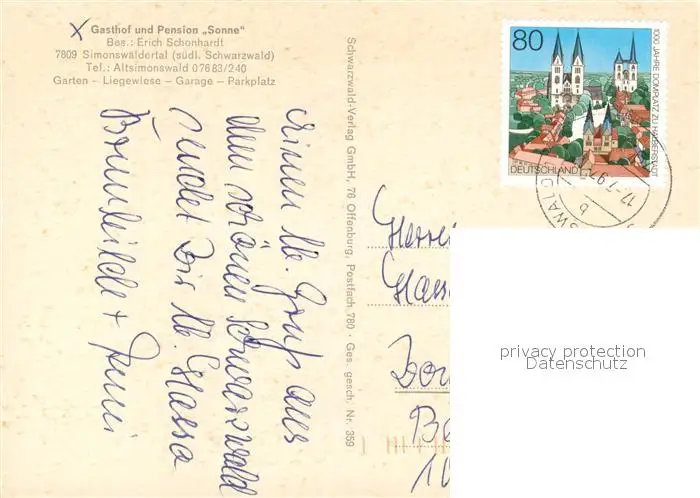 x Gasthof und Pension „Sonne"
Bes.: Erich Schonhardt
7809 Simonswäldertal (südl. Schwarzwald)
Tel.: Altsimonswald 07683/240
Garten – Liegewiese – Garage – Parkplatz
einen lb. Gruß aus
dem schönen Schwarzwald
sendet Dir lb. Hassa
Brunhilde +
Schwarzwald-Verlag GmbH, 76 Offenburg, Postfach 780 · Ges. gesch. Nr. 359
80
1000 JAHRE DOMPLATZ ZU HALBERSTADT
DEUTSCHLAND
12.-7.97
b
SWALD
Herrn
Hass
Do
Be
10
privacy protection
Datenschutz